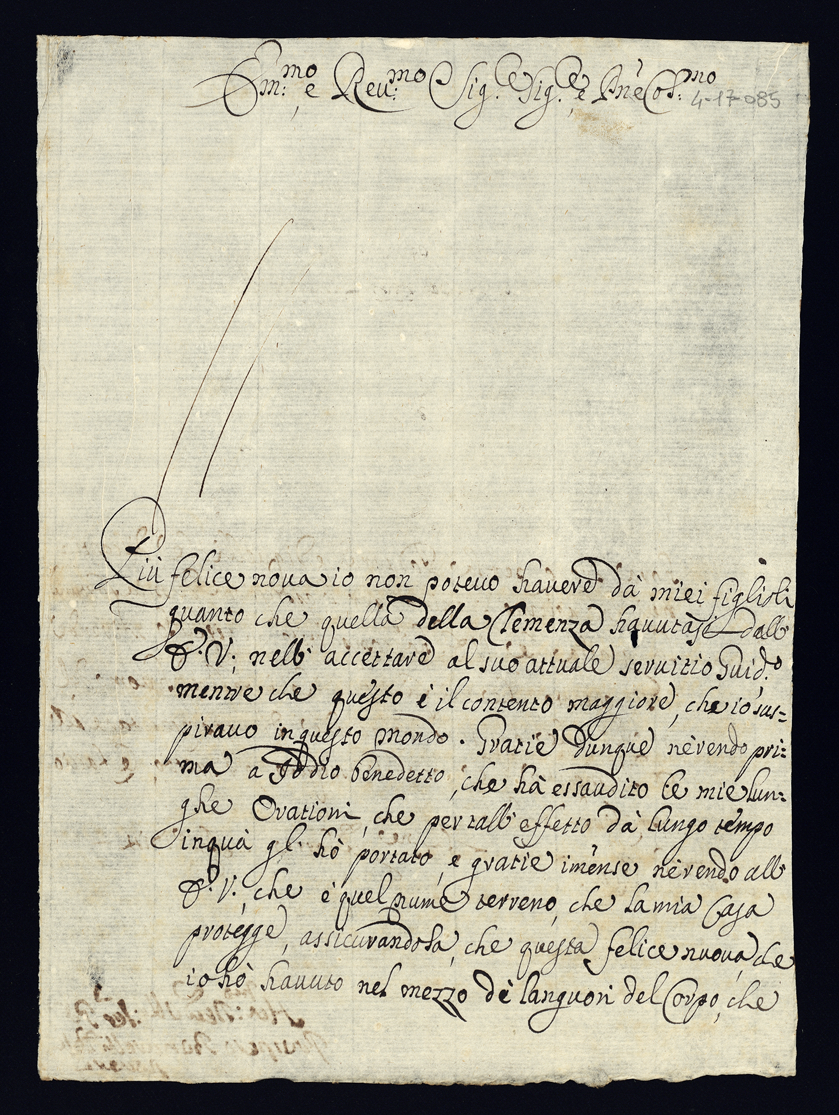 Em:mo e Reu:mo Sig.re Sig.re e Pne Col:mo
4-17-085
Più felice noua io non poteuo hauere dà miei figlioli
quanto che quella della Clemenza hauutasi dall'
E. V; nell' accettare al suo attuale seruitio Guid.o
mentre che questo è il contento maggiore, che io sus=
pirauo in questo mondo. Gratie dunque nè rendo pri=
ma a Iddio benedetto, che hà essaudito le mie lun=
ghe Orationi, che per tall' effetto dà lungo tempo
inquà gl' hò portato, e gratie imense nè rendo all'
E. V., che è quel nume terreno, che la mia Casa
protegge, assicurandola, che questa felice nuoua, che
io hò hauuto nel mezzo dè languori del Corpo, che